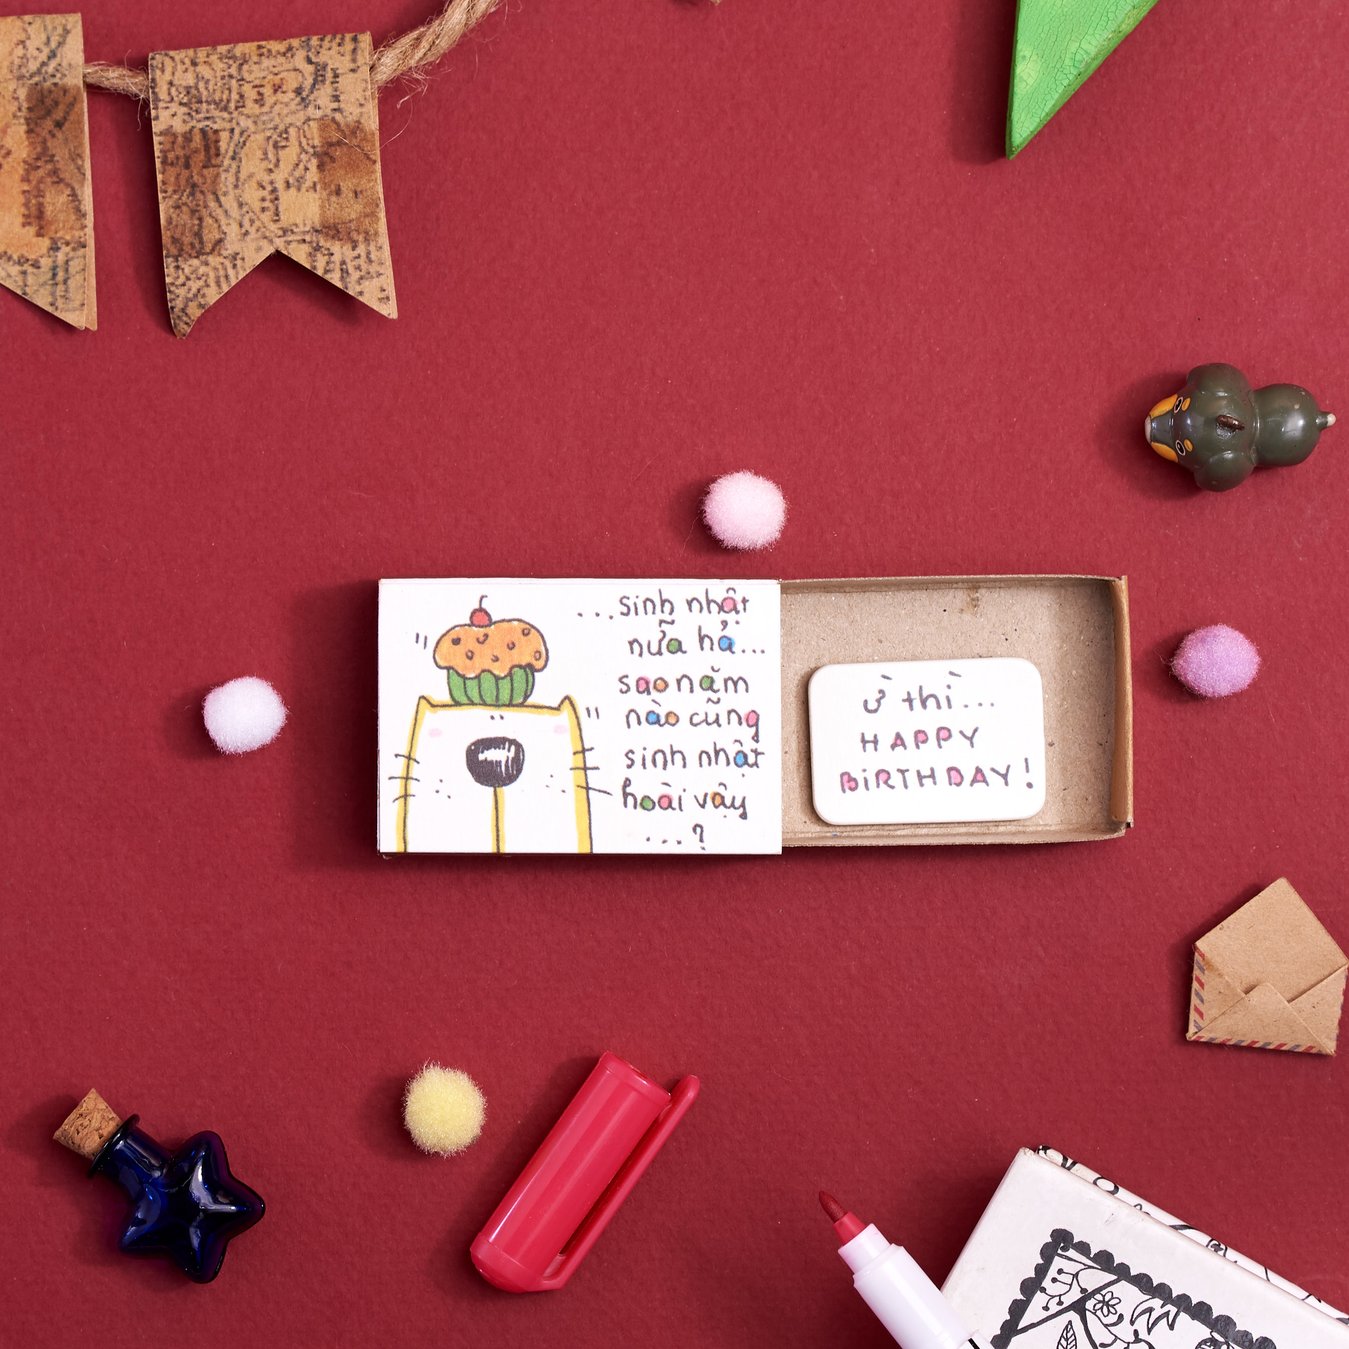 ...sinh nhật
nữa hả...
sao năm
nào cũng
sinh nhật
hoài vậy
...?
Ừ thì...
HAPPY
BiRTHDAY!